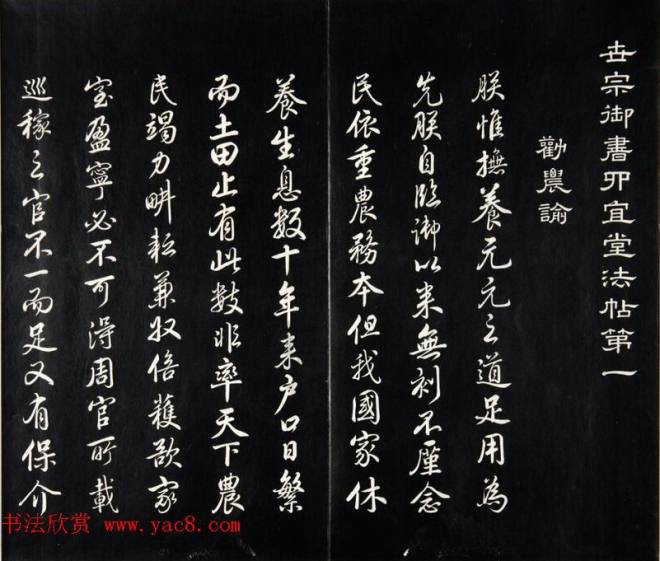 世宗御書四宜堂法帖第一
勸農諭
朕惟撫養元元之道足用為
先朕自臨御以来無刻不廑念
民依重農務本但我國家休
養生息数十年来户口日繁
而土田止有此数非率天下農
民竭力畊耘兼収倍穫欲家
室盈寧必不可得周官所載
巡稼之官不一而足又有保介
书法欣赏 www.yac8.com